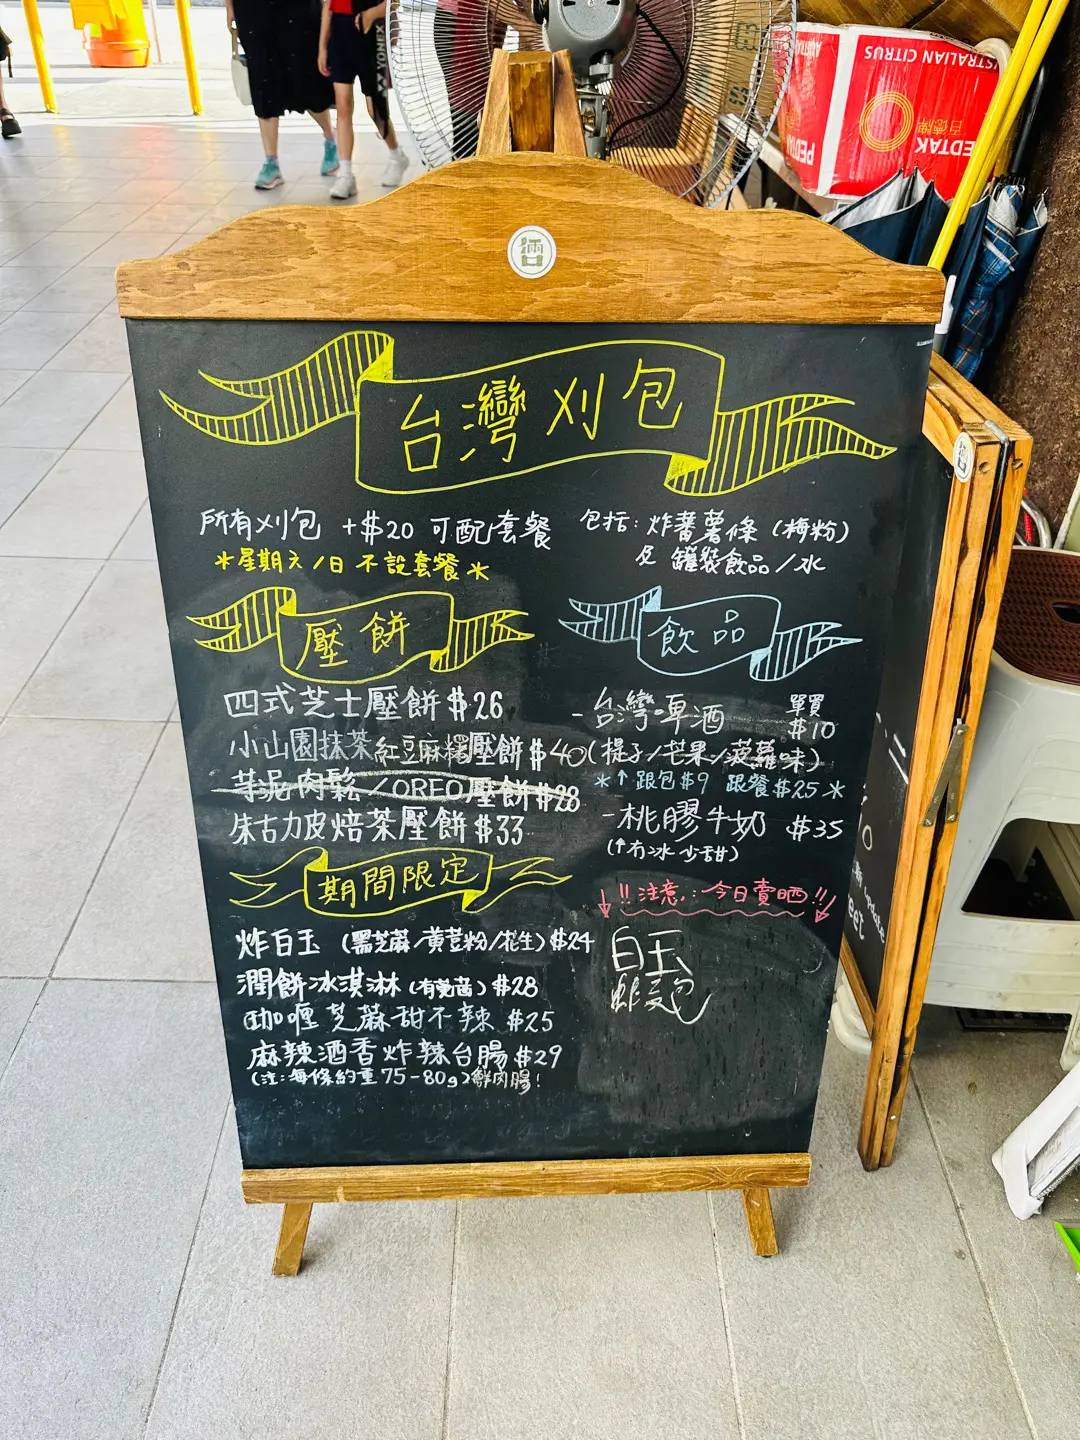 AUSTRALIAN CITRUS
百德牌
PEDTAK
YONEX
台灣刈包
所有刈包 +$20 可配套餐
*星期六/日 不設套餐*
包括: 炸蕃薯條 (梅粉)
及 罐裝飲品/水
壓餅
四式芝士壓餅 $26
小山園抹茶紅豆麻糬壓餅 $40
芋泥肉鬆/OREO壓餅 $28
朱古力皮焙茶壓餅 $33
飲品
- 台灣啤酒 單買 $10
(提子/芒果/菠蘿味)
*↑跟包$9 跟餐$25*
- 桃膠牛奶 $35
(↑冇冰 少甜)
期間限定
炸白玉 (黑芝蔴/黃荳粉/花生) $24
潤餅冰淇淋 (有芫茜) $28
咖喱芝蔴甜不辣 $25
麻辣酒香炸辣台腸 $29
(注: 每條約重 75-80g) 鮮肉腸!
↓!!注意: 今日賣晒!!↓
白玉
炸包
update
eet